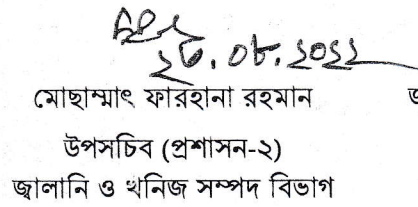 ২৩.০৮.২০২২
মোছাম্মাৎ ফারহানা রহমান
উপসচিব (প্রশাসন-২)
জ্বালানি ও খনিজ সম্পদ বিভাগ